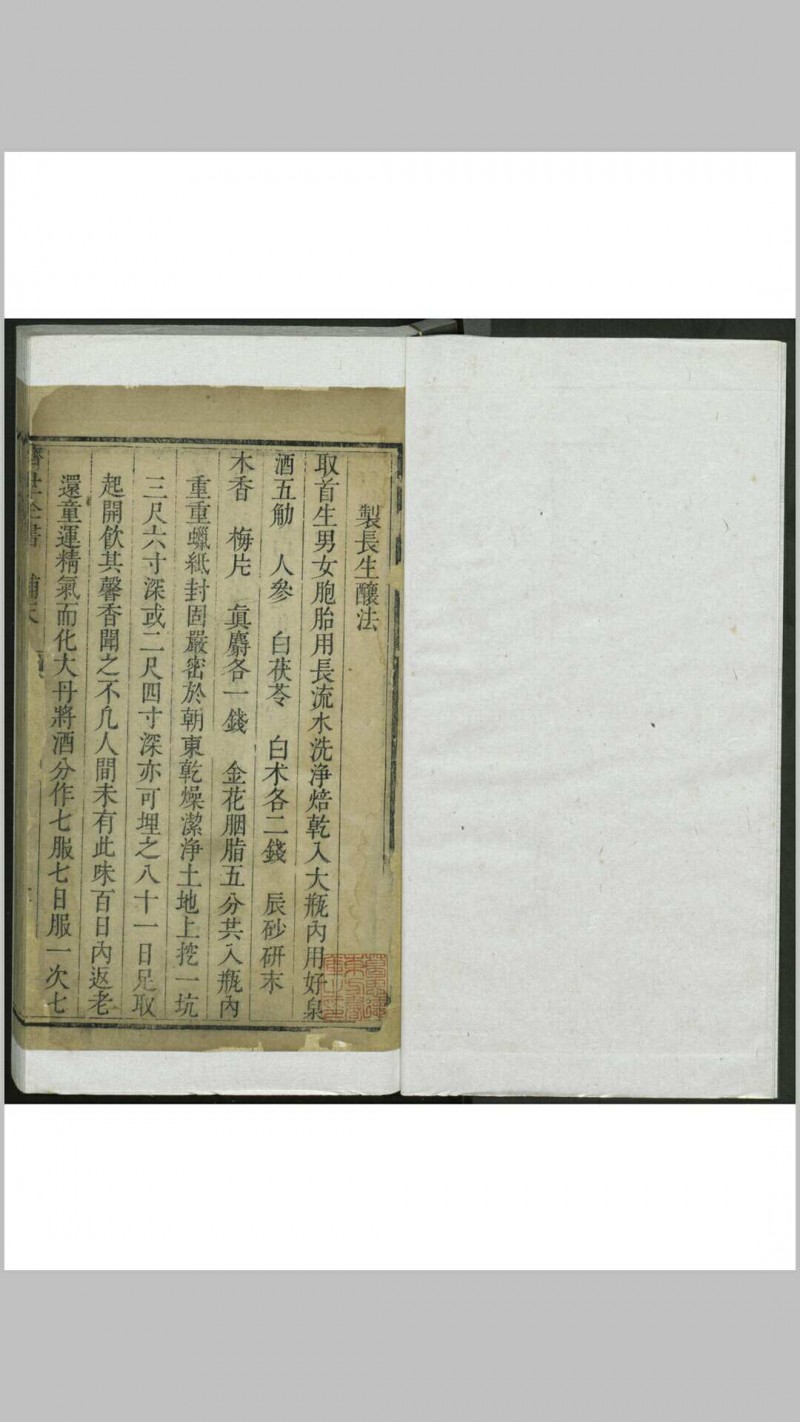 製長生釀法
取首生男女胞胎用長流水洗淨焙乾入大瓶內用好泉
酒五觔　人參　白茯苓　白术各二錢　辰砂研末
木香　梅片　真麝各一錢　金花胭脂五分共入瓶內
重重蠟紙封固嚴密於朝東乾燥潔淨土地上挖一坑
三尺六寸深或二尺四寸深亦可埋之八十一日足取
起開飲其馨香聞之不凡人間未有此味百日內返老
還童運精氣而化大丹將酒分作七服七日服一次七
濟世全書